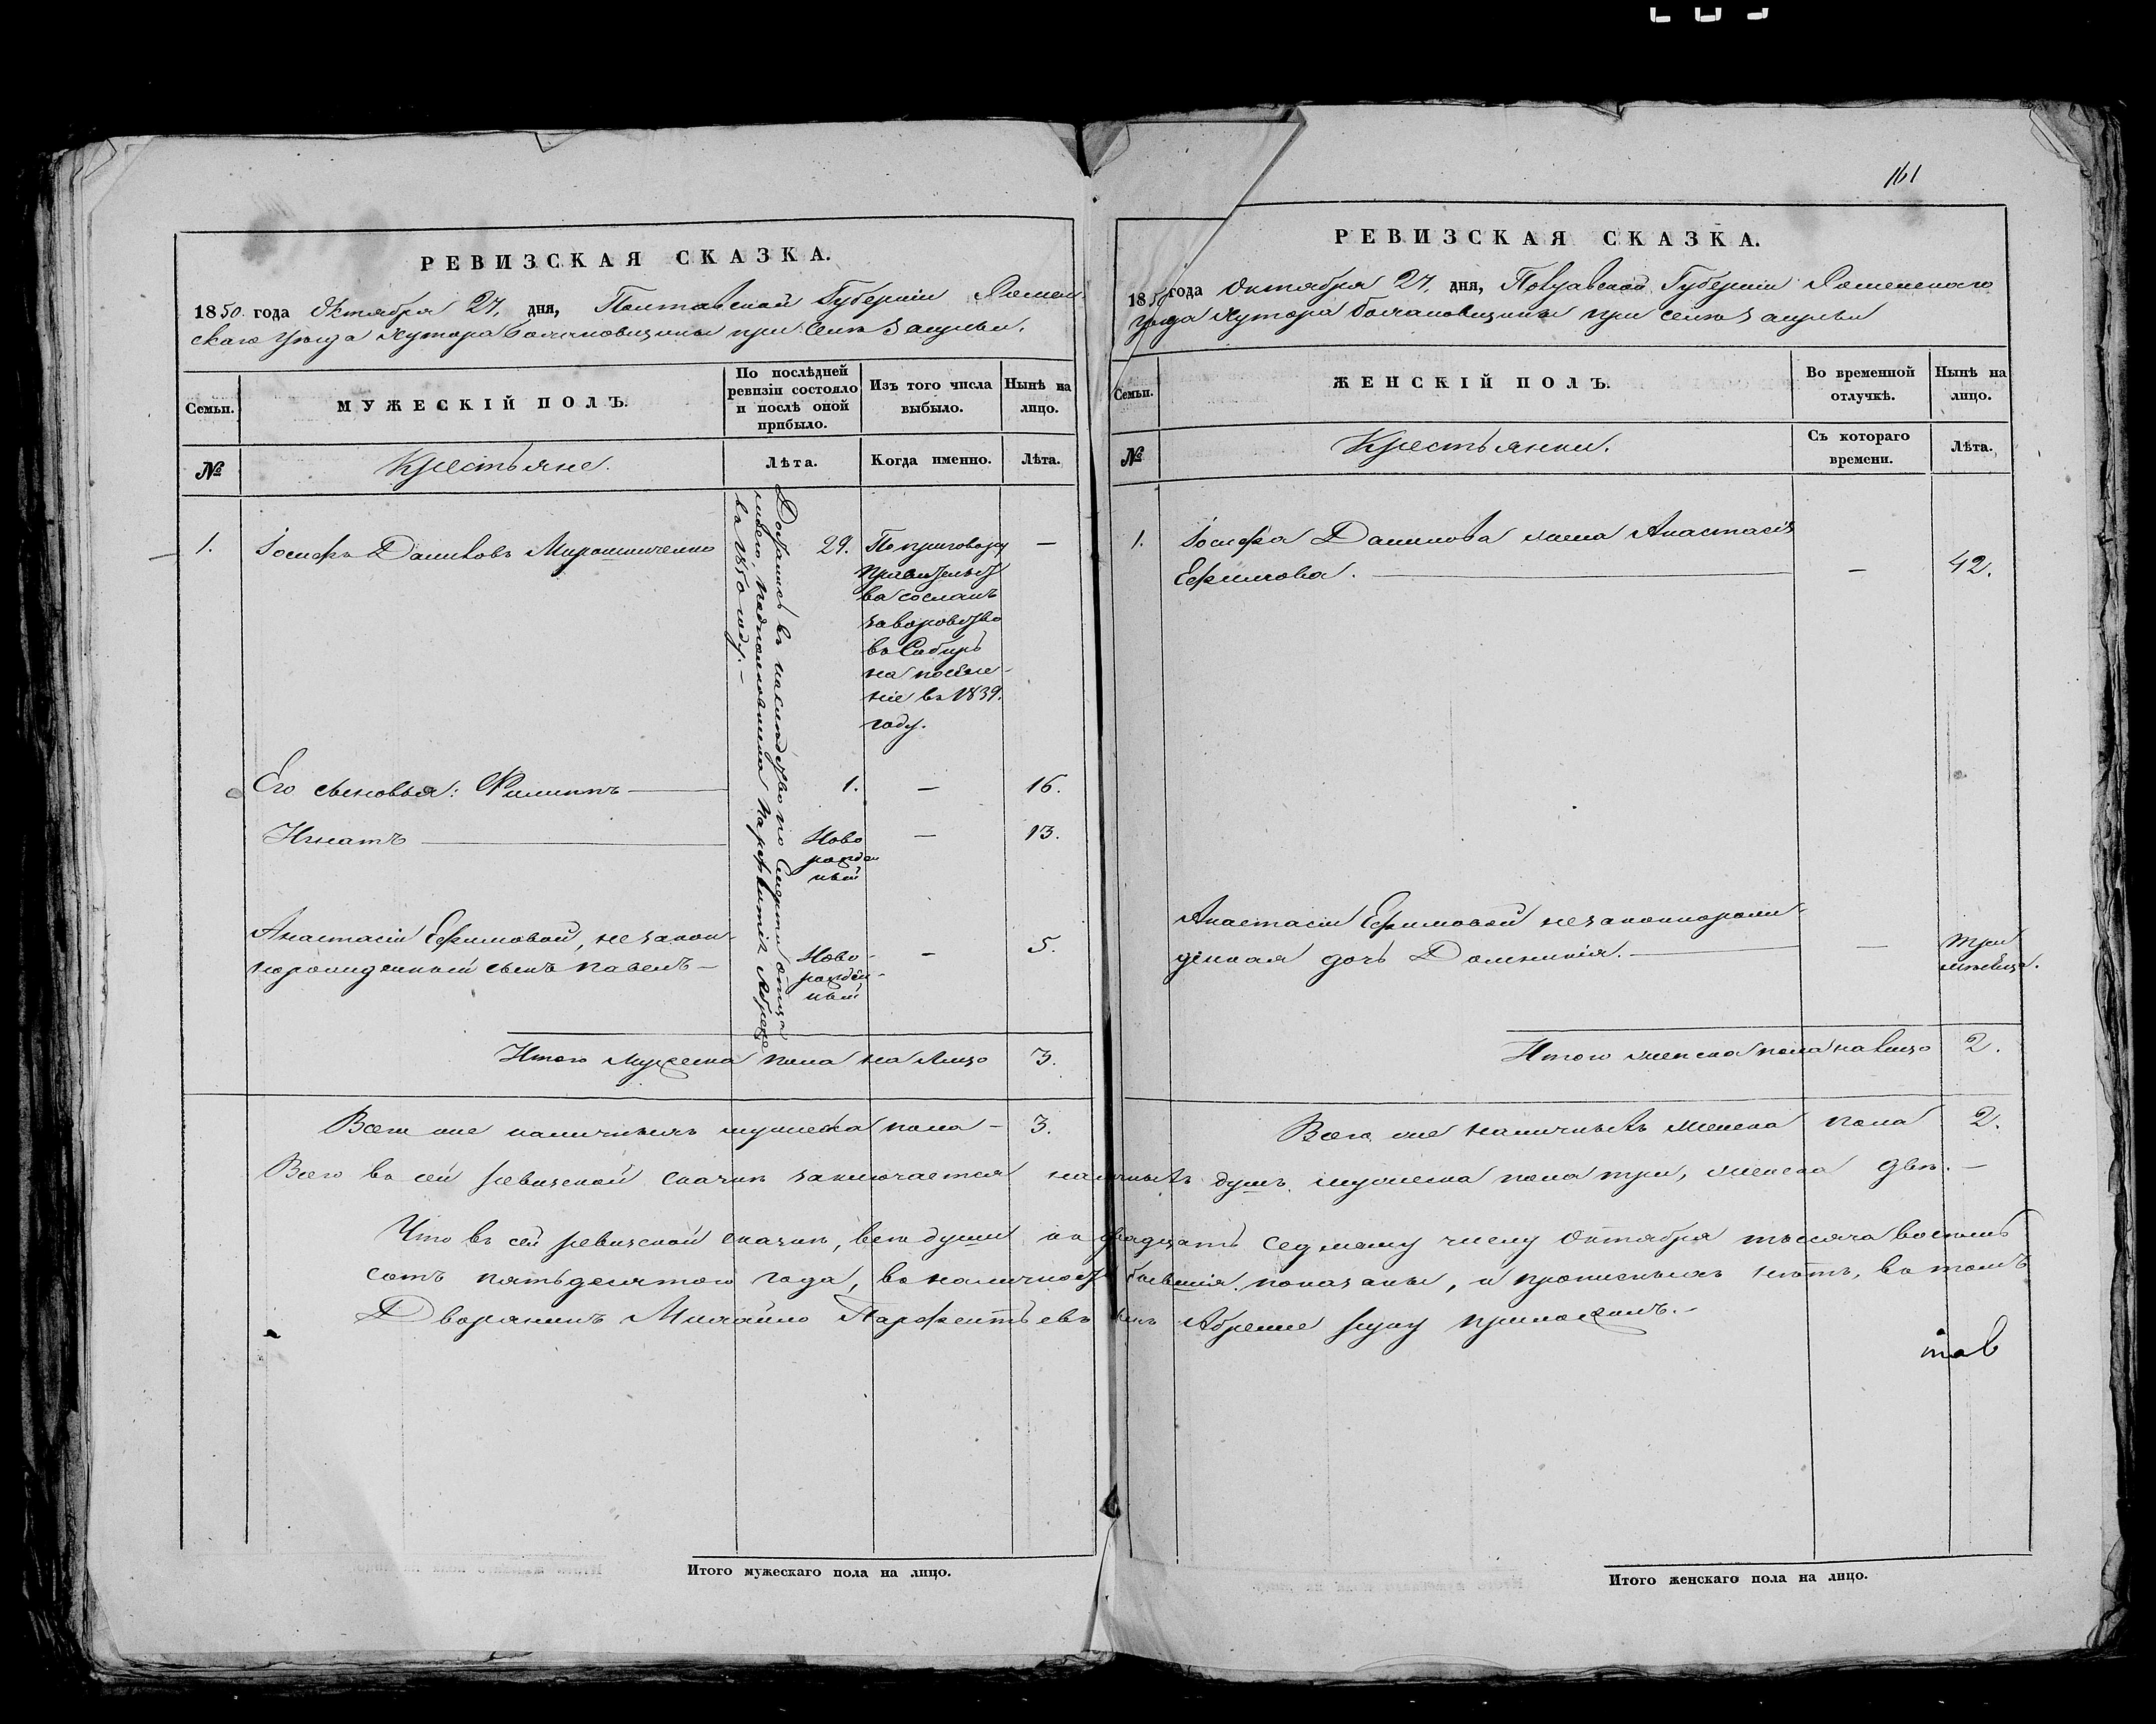 161
РЕВИЗСКАЯ СКАЗКА.
1850 года Октября 27, дня, Полтавской Губерніи Ромен-
скаго уѣзда Хутора при селѣ
Семьи.
МУЖЕСКІЙ ПОЛЪ.
По послѣдней ревизіи состояло и послѣ оной прибыло.
Изъ того числа выбыло.
Нынѣ на лицо.
№
Крестьяне.
Лѣта.
Когда именно.
Лѣта.
1. Іосифъ Даниловъ Мирошниченко 29. По приговору —
правительст
ва сосланъ
за воровство
въ Сибирь
на поселе-
ніе въ 1839.
году.
Досталисъ въ наслѣдство по смерти отца
моего, подполковника Парфентія
въ 1850 году. —
Его сыновья: Филиппъ 1. — 16.
Игнатъ Ново
рожден
ный — 13.
Анастасіи Ефимовой, незакон-
норожденный сынъ Павелъ — Ново-
рожден-
ный — 5.
Итого мужеска пола на лицо 3.
Всего же наличныхъ мужеска пола — 3.
РЕВИЗСКАЯ СКАЗКА.
1850 года Октября 27, дня, Полтавской Губерніи Роменскаго
уѣзда Хутора при селѣ
Семьи.
ЖЕНСКІЙ ПОЛЪ.
Во временной отлучкѣ.
Нынѣ на лицо.
№
Крестьянки.
Съ котораго времени.
Лѣта.
1. Іосифа Данилова жена Анастасія
Ефимова. — 42.
Анастасіи Ефимовой незаконнорож-
денная дочь Домникія. — три
мѣсяца.
Итого женска пола на лицо 2.
Всего же наличныхъ женска пола 2.
Всего въ сей ревизской сказкѣ заключается наличныхъ душъ мужеска пола три, женска двѣ. —
Что въ сей ревизской сказкѣ, всѣ души по двадцать седьмому числу Октября тысяча восемь
сотъ пятьдесятого года, въ наличност бывшія показаны, и прописныхъ нѣтъ, въ томъ
Дворянинъ Михайло Парфентьевъ сынъ руку приложилъ. —
Итого мужескаго пола на лицо.
Итого женскаго пола на лицо.